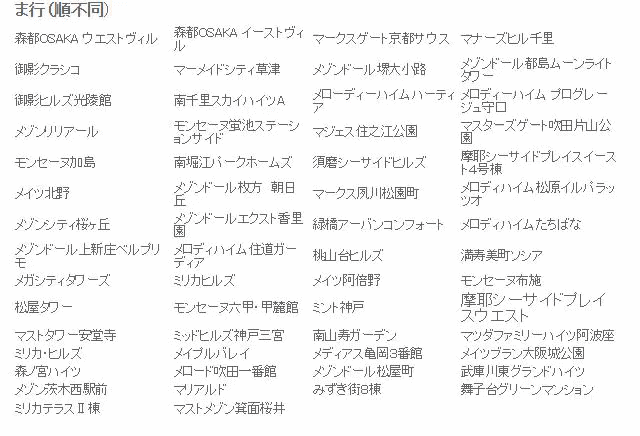 ま行（順不同）
森都OSAKA ウエストヴィル
森都OSAKA イーストヴィ
ル
マークスゲート京都サウス
マナーズヒル千里
御影クラシコ
マーメイドシティ草津
メゾンドール堺大小路
メゾンドール都島ムーンライト
タワー
御影ヒルズ光陵館
南千里スカイハイツA
メローディーハイム ハーティ
ア
メロディーハイム プログレー
ジュ守口
メゾンリリアール
モンセーヌ蛍池ステーシ
ョンサイド
マジェス住之江公園
マスターズゲート吹田片山公
園
モンセーヌ加島
南堀江パークホームズ
須磨シーサイドヒルズ
摩耶シーサイドプレイスイース
ト4号棟
メイツ北野
メゾンドール枚方　朝日
丘
マークス夙川松園町
メロディハイム松原イルパラッ
ツオ
メゾンシティ桜ヶ丘
メゾンドールエクスト香里
園
緑橋アーバンコンフォート
メロディハイムたちばな
メゾンドール上新庄ベルプリ
モ
メロディハイム住道ガー
ディア
桃山台ヒルズ
満寿美町ソシア
メガシティタワーズ
ミリカヒルズ
メイツ阿倍野
モンセーヌ布施
松屋タワー
モンセーヌ六甲・甲麓館
ミント神戸
摩耶シーサイドプレイ
スウエスト
マストタワー安堂寺
ミッドヒルズ神戸三宮
南山寿ガーデン
マツダファミリーハイツ阿波座
ミリカ・ヒルズ
メイプルバレイ
メディアス亀岡3番館
メイツブラン大阪城公園
森ノ宮ハイツ
メロード吹田一番館
メゾンドール松屋町
武庫川東グランドハイツ
メゾン茨木西駅前
マリアルド
みずき街8棟
舞子台グリーンマンション
ミリカテラスⅡ棟
マストメゾン箕面桜井